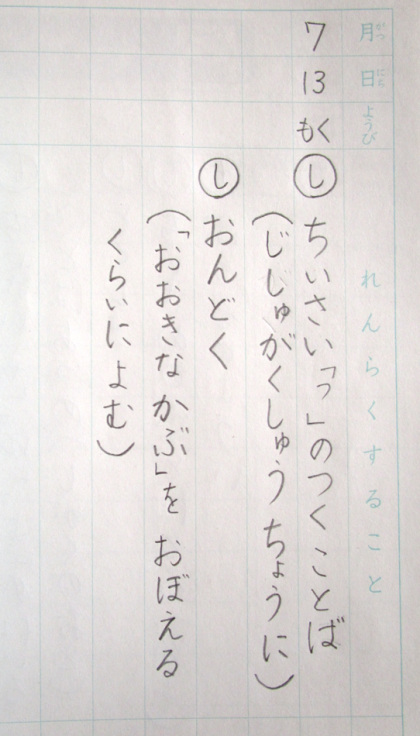 月がつ
日にち
ようび
れんらくすること
7
13
もく
し ちいさい「っ」のつくことば
(じしゅがくしゅうちょうに)
し おんどく
(「おおきな かぶ」を おぼえる
くらいによむ)